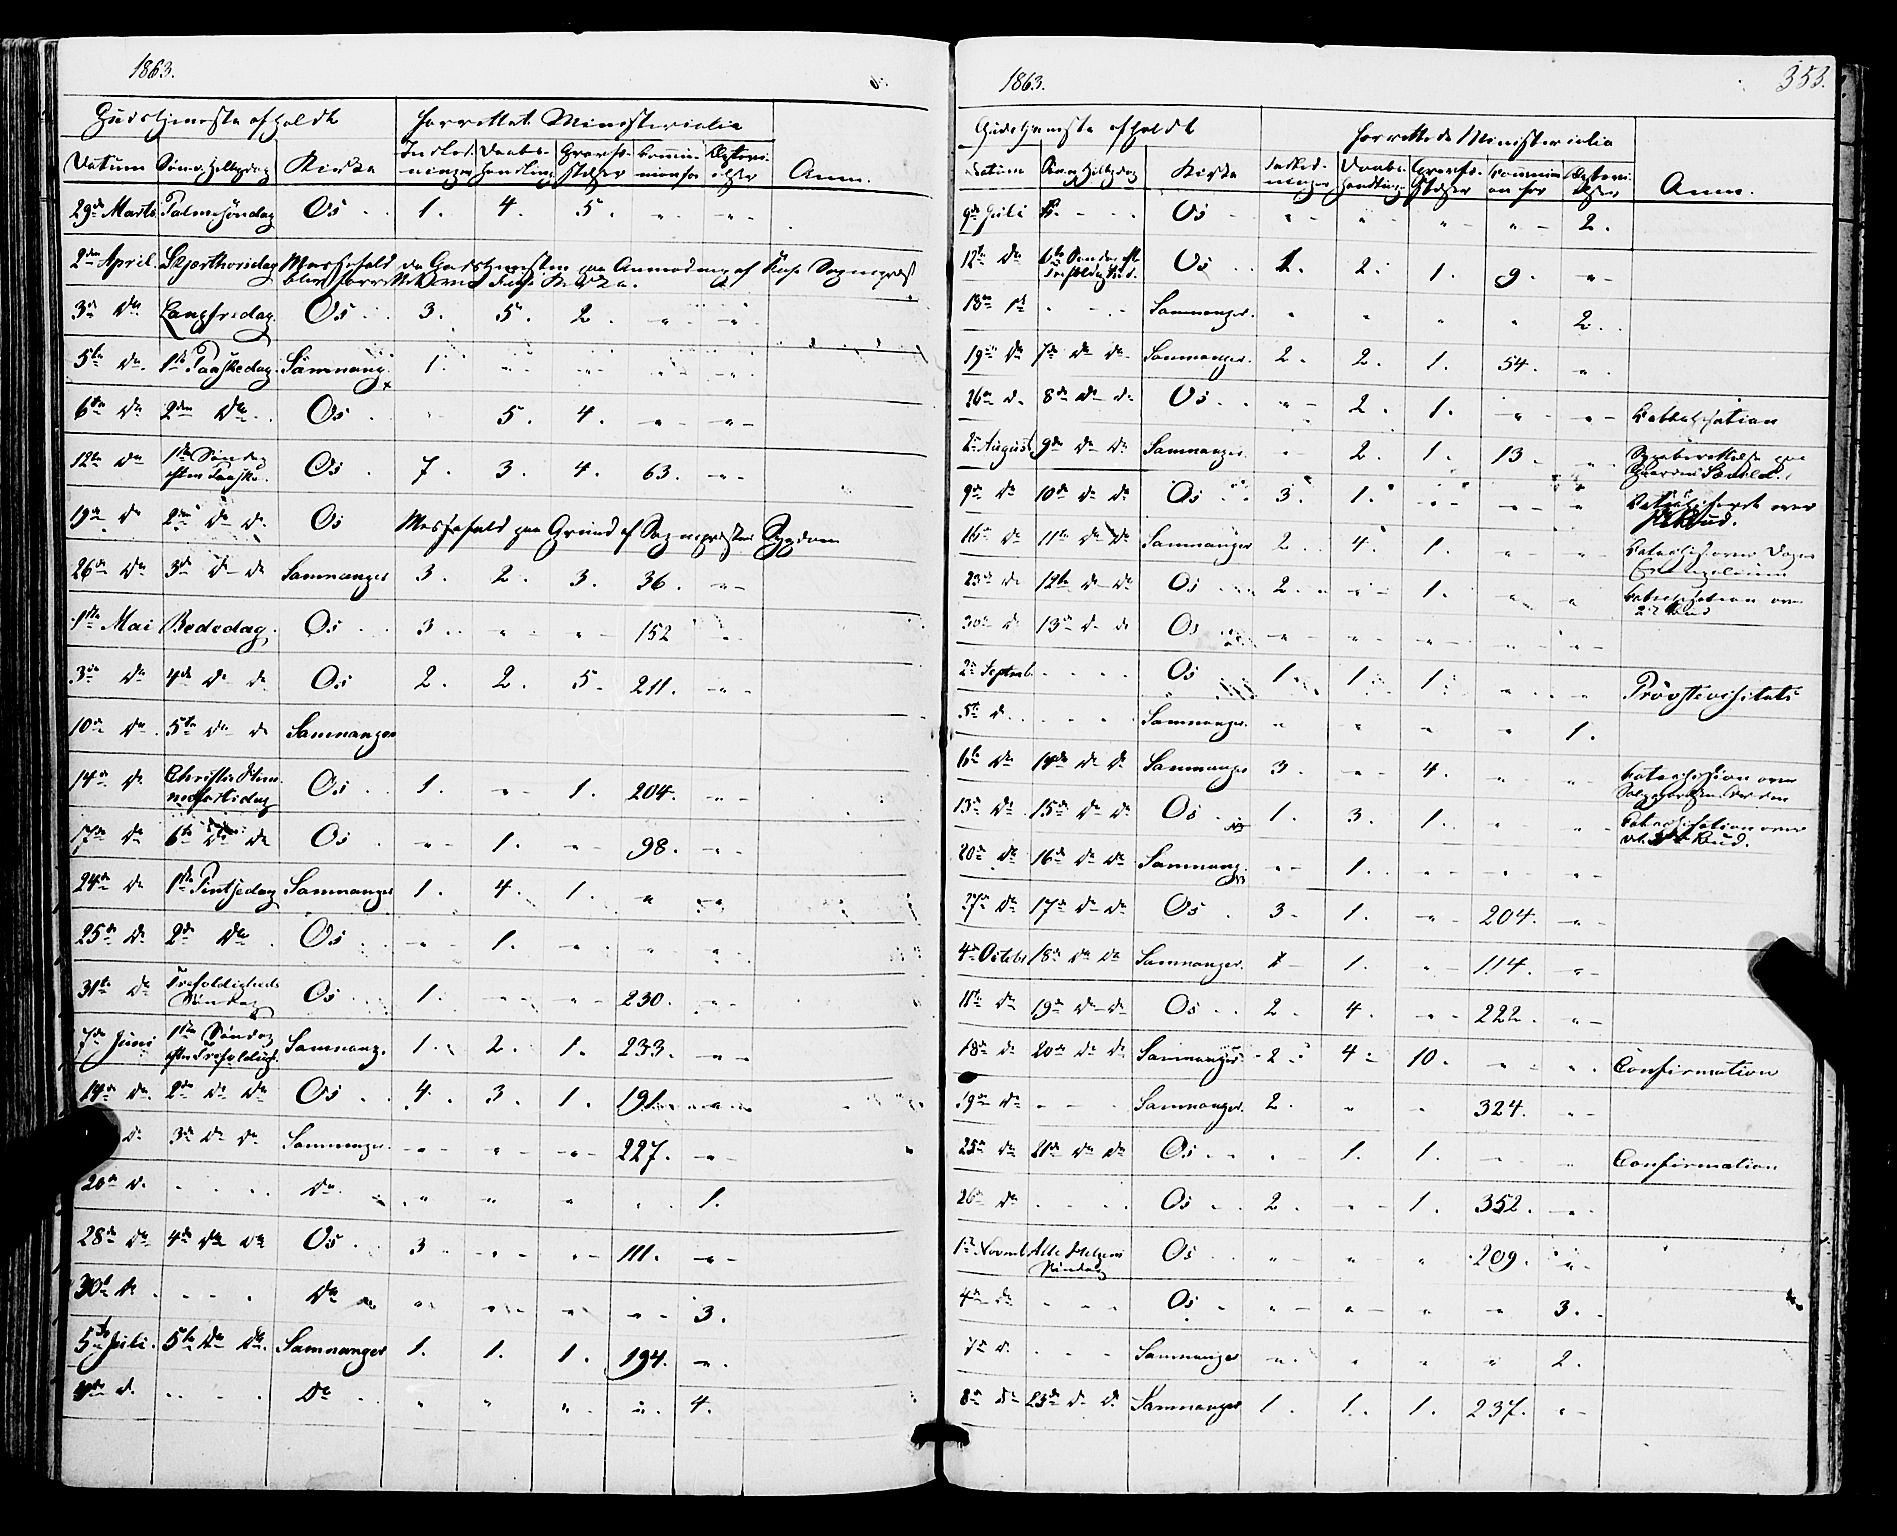 1863.
Gudstjeneste afholdt Forrettet Ministerialia
Datum Søn og Helligdag Kirke Indled- ninger Daabs- handling Gravfæ- stelser Commu- nion for Ægtevi- elser Anm.
29de Marts Palmesøndag Os 1. 4. 5. " "
2den April Skjærthorsdag Messefald da Gudstjenesten paa Anmodning af Sognepræst
blev forrettet Kirke.
3die Do Langfredag Os 3. 5. 2. " "
5te Do 1ste Paaskedag Samnang. 1. " " " "
6te Do 2den Do Os " 5. 4. " "
12te Do 1ste Søndag
efter Paaske. Os 7. 3. 4. 63. "
19de Do 2den Do Do Os Messefald paa Grund af Sognepræstens Sygdom
26de Do 3die Do Do Samnanger 3. 2. 3. 36. "
1ste Mai Bededag Os 3. " " 152 "
3die Do 4de Do Do Os 2. 2. 5. 211. "
10de Do 5te Do Do Samnanger
14de Do Christi Him-
melfartsdag Os 1. " 1. 204. "
17de Do 6te Do Do Os " 1. " 98. "
24de Do 1ste Pintsedag Samnanger 1. 4. 1. " "
25de Do 2den Do Os " 1. " " "
31te Do Trefoldigheds
Søndag Os 1. " " 230. "
7de Juni 1ste Søndag
efter Trefoldigh. Samnang. 1. 2. 1. 233. "
14de Do 2den Do Do Os 4. 3. 1. 191. "
Do 3die Do Do Samnanger " " " 227. "
Do Do " " " " 1.
28de Do 4de Do Do Os 3 " " 111. "
30te Do Do " " " " 3.
5te Juli 5te Do Do Samnanger 1. 1. 1. 194. "
Do Do " " " " 4.
1863. 353.
Gudstjeneste afholdt Forrettede Ministerialia
Datum Søn og Helligdag Kirke Indled- ninger Daabs- handling Gravfæ- stelser Commu- nion for Ægtevi- elser Anm.
9de Juli Os " " " " 2.
12te Do 6te Søndag eft.
Trefoldighed. Os 1. 2. 1. 9. "
Samnanger. " " " " 2.
19de Do 7de Do Do Samnanger. 2. 2. 1. 54. "
26de Do 8de Do Do Os " 2. 1. " " Catechisation
2den August 9de Do Do Samnanger " 2. 1. 13. "
9de Do 10de Do Do Os 3. 1. " " " over
Bud.
16de Do 11te Do Do Samnanger 2. 4. 1. " " over Dagens
Evangelium
23de Do 12te Do Do Os 2. " 1. " " Catechisation over
2det Bud
30te Do 13de Do Do Os " " " " "
2den Septemb. Os 1. 1. 1. " " Provstevisitats
5te Do Samnanger " " " " 1.
6te Do 14de Do Do Samnanger 3. " 4. " " Catechisation over
13de Do 15de Do Do Os 1. 3. 1. " " Catechisation over
Bud.
20de Do 16de Do Do Samnang. " 1. " " "
27de Do 17de Do Do Os 3. 1. " 204. "
4de Octobr 18de Do Do Samnanger. 1 1. " 114. "
11te Do 19de Do Do Os 2. 4. " 222. "
18de Do 20de Do Do Samnanger 2. 4. 10. " " Confirmation
19de Do Samnanger. 2. " " 324. "
25de Do 21de Do Do Os " 1. 1. " " Confirmation
26de Do Os 2. " 1. 352. "
1ste Novmb. Alle Helgens
Søndag Os " " " 209. "
4de Do Os " " " " 3.
7de Do Samnanger " " " " 2.
8de Do 23de Do Do Samnanger 1. 1. 1. 237. "